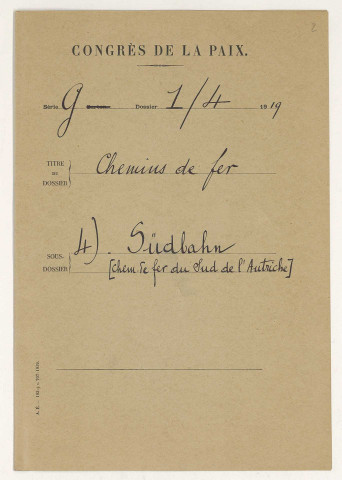 2
CONGRÈS DE LA PAIX.
Série G Dossier 1/4 1919
TITRE
DU
DOSSIER
Chemins de fer
SOUS-
DOSSIER
4). Südbahn
[Chem de fer du Sud de l'Autriche]